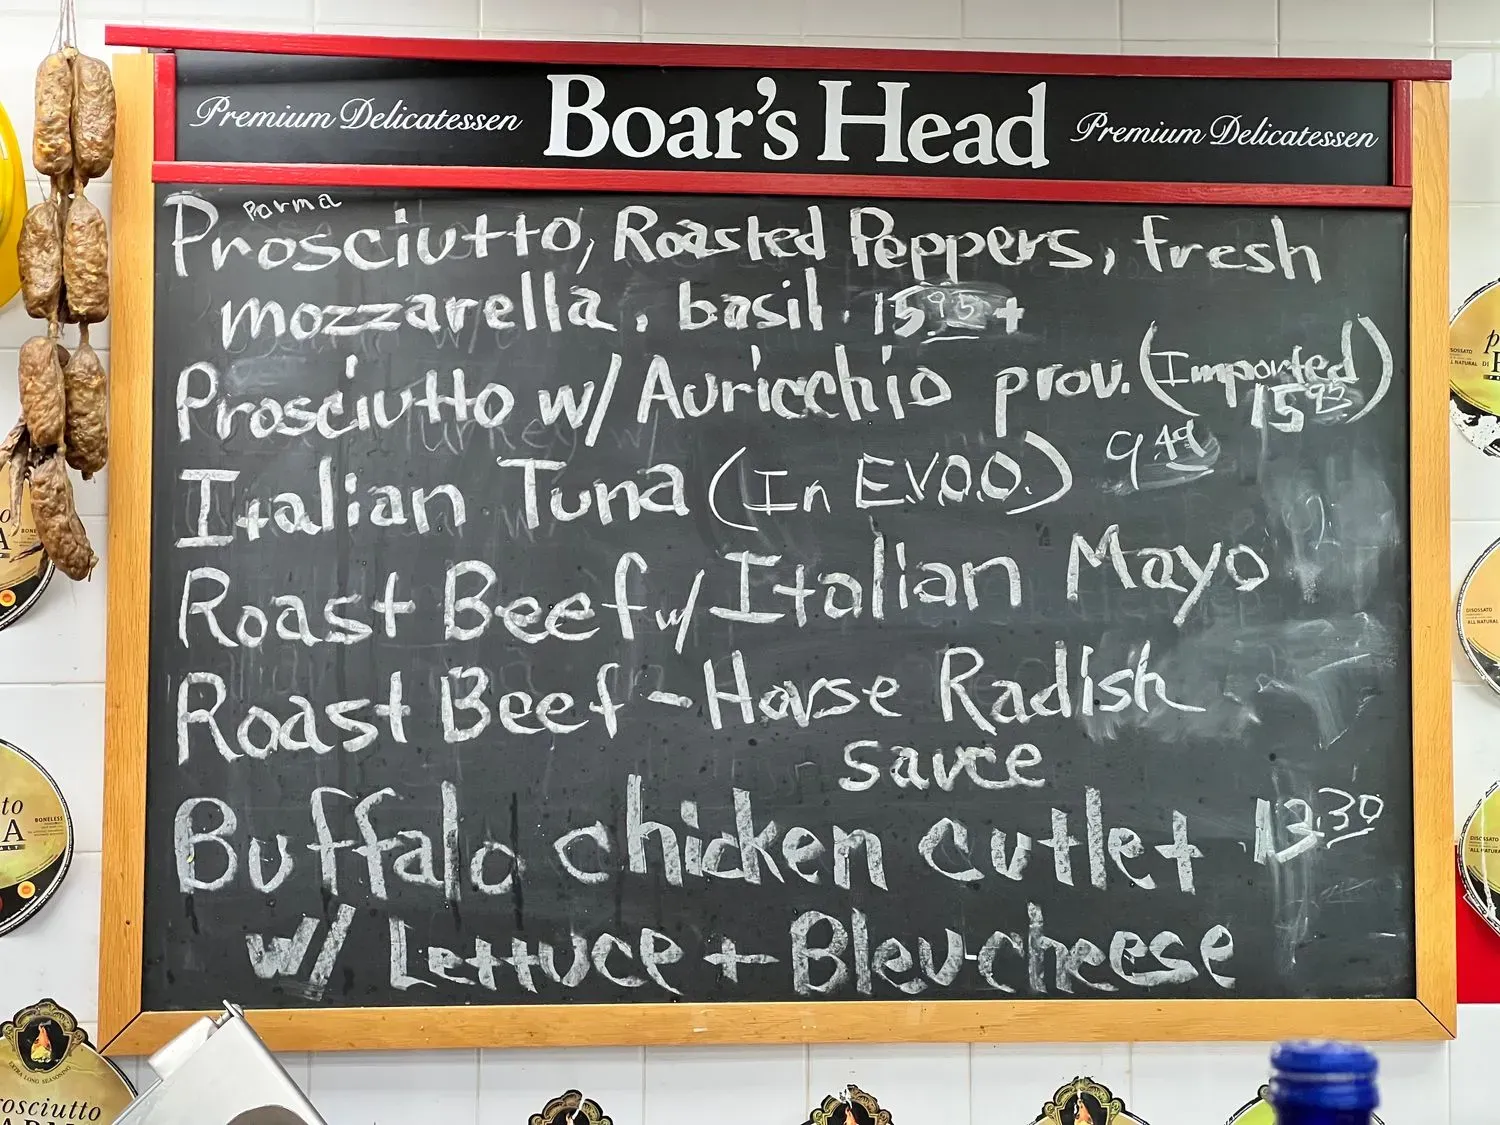 Premium Delicatessen Boar's Head Premium Delicatessen
Parma
Prosciutto, Roasted Peppers, fresh
mozzarella, basil. 15 95 +
Prosciutto w/ Auricchio prov. (Imported)
15 95
Italian Tuna (In E.V.O.O.) 9 49
Roast Beef w/ Italian Mayo
Roast Beef - Horse Radish
sauce
Buffalo chicken cutlet 13.30
w/ Lettuce + Bleu-cheese
BONELESS
DISOSSATO
ALL NATURAL
EXTRA LONG SEASONING